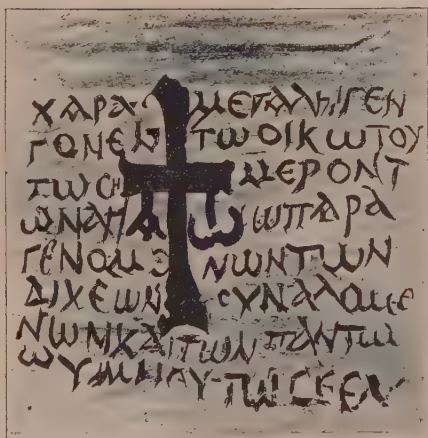 ΧΑΡΑ ΜΕΓΑΛΗ ΓΕΝ
ΓΟΝΕΝ ΤΩ ΟΙΚΩ ΤΟΥ
ΤΩ CΗΜΕΡΟΝ Τ
ΩΝ ΑΓΙ Α Ω Ω ΠΑΡΑ
ΓΕΝΟΜΕΝΩΝ ΤΩΝ
ΔΙΧΕΩΝ CΥΝΑΛΟΜΕ
ΝΩΝ ΚΑΙ ΤΩΝ ΠΑΝΤΩ